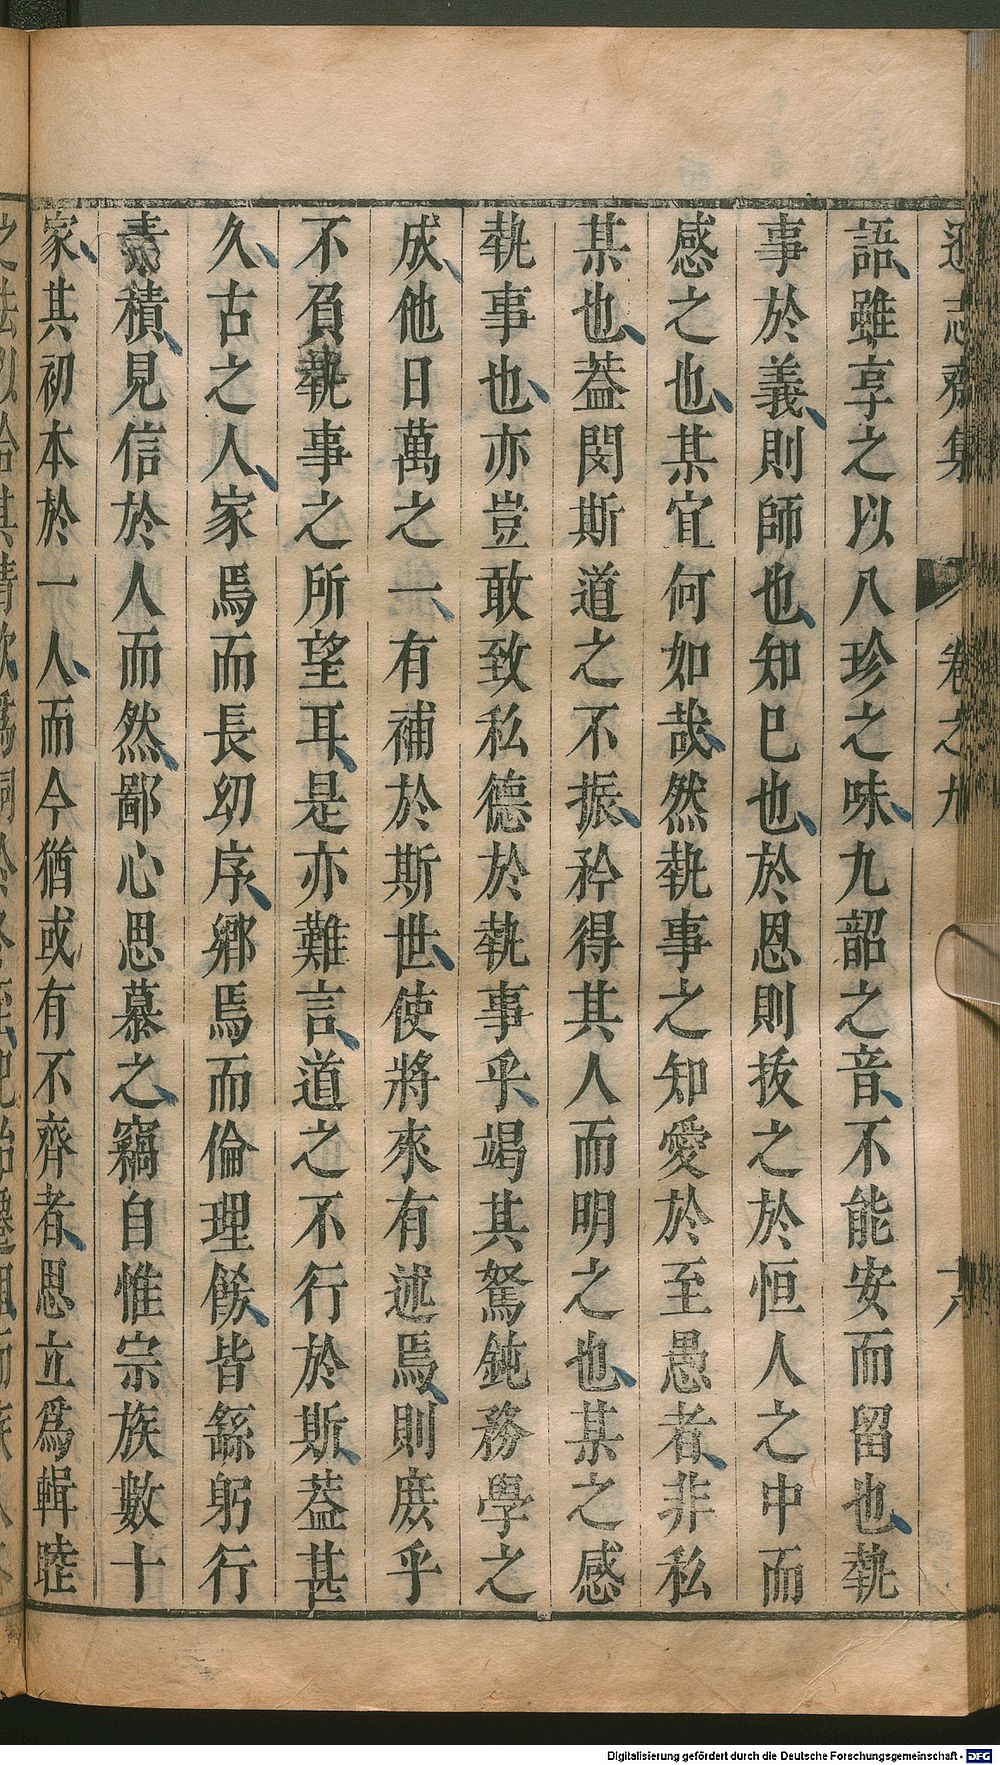 遜志齋集 卷之九 十八
語雖享之以八珍之味九韶之音不能安而留也執
事於義則師也知已也於恩則拔之於恒人之中而
感之也某宜何如哉然執事之知愛於至愚者非私
某也葢閔斯道之不振矜得其人而明之也某之感
執事也亦豈敢致私德於執事乎竭其駑鈍務學之
成他日萬之一有補於斯世使將來有述焉則庶乎
不負執事之所望耳是亦難言道之不行於斯葢甚
久古之人家焉而長幼序鄉焉而倫理飭皆繇躬行
素積見信於人而然鄙心思慕之竊自惟宗族數十
家其初本於一人而今猶或有不齊者思立爲輯睦
Digitalisierung gefördert durch die Deutsche Forschungsgemeinschaft - DFG